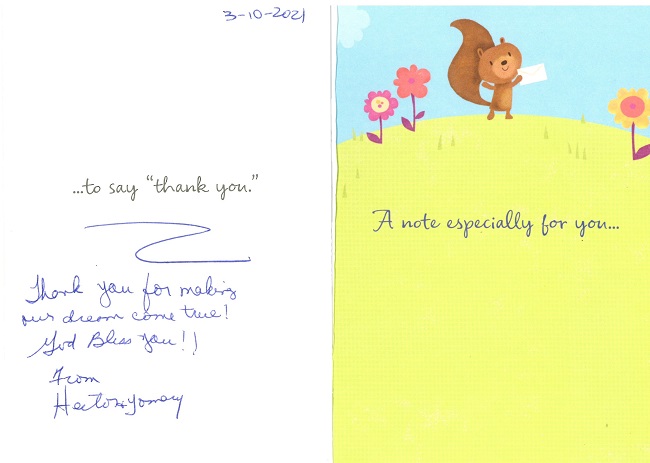 3-10-2021
...to say "thank you."
Thank you for making
our dream come true!
God Bless You!!
From
A note especially for you...